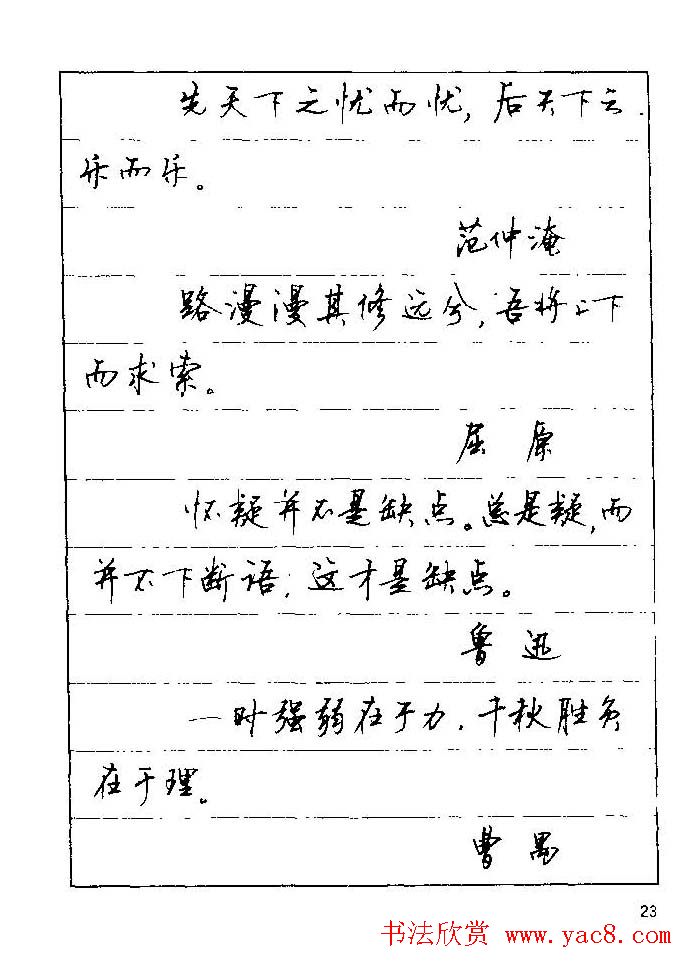 先天下之忧而忧，后天下之
乐而乐。
范仲淹
路漫漫其修远兮，吾将上下
而求索。
屈原
怀疑并不是缺点。总是疑，而
并不下断语，这才是缺点。
鲁迅
一时强弱在于力，千秋胜负
在于理。
曹禺
23
书法欣赏 www.yac8.com